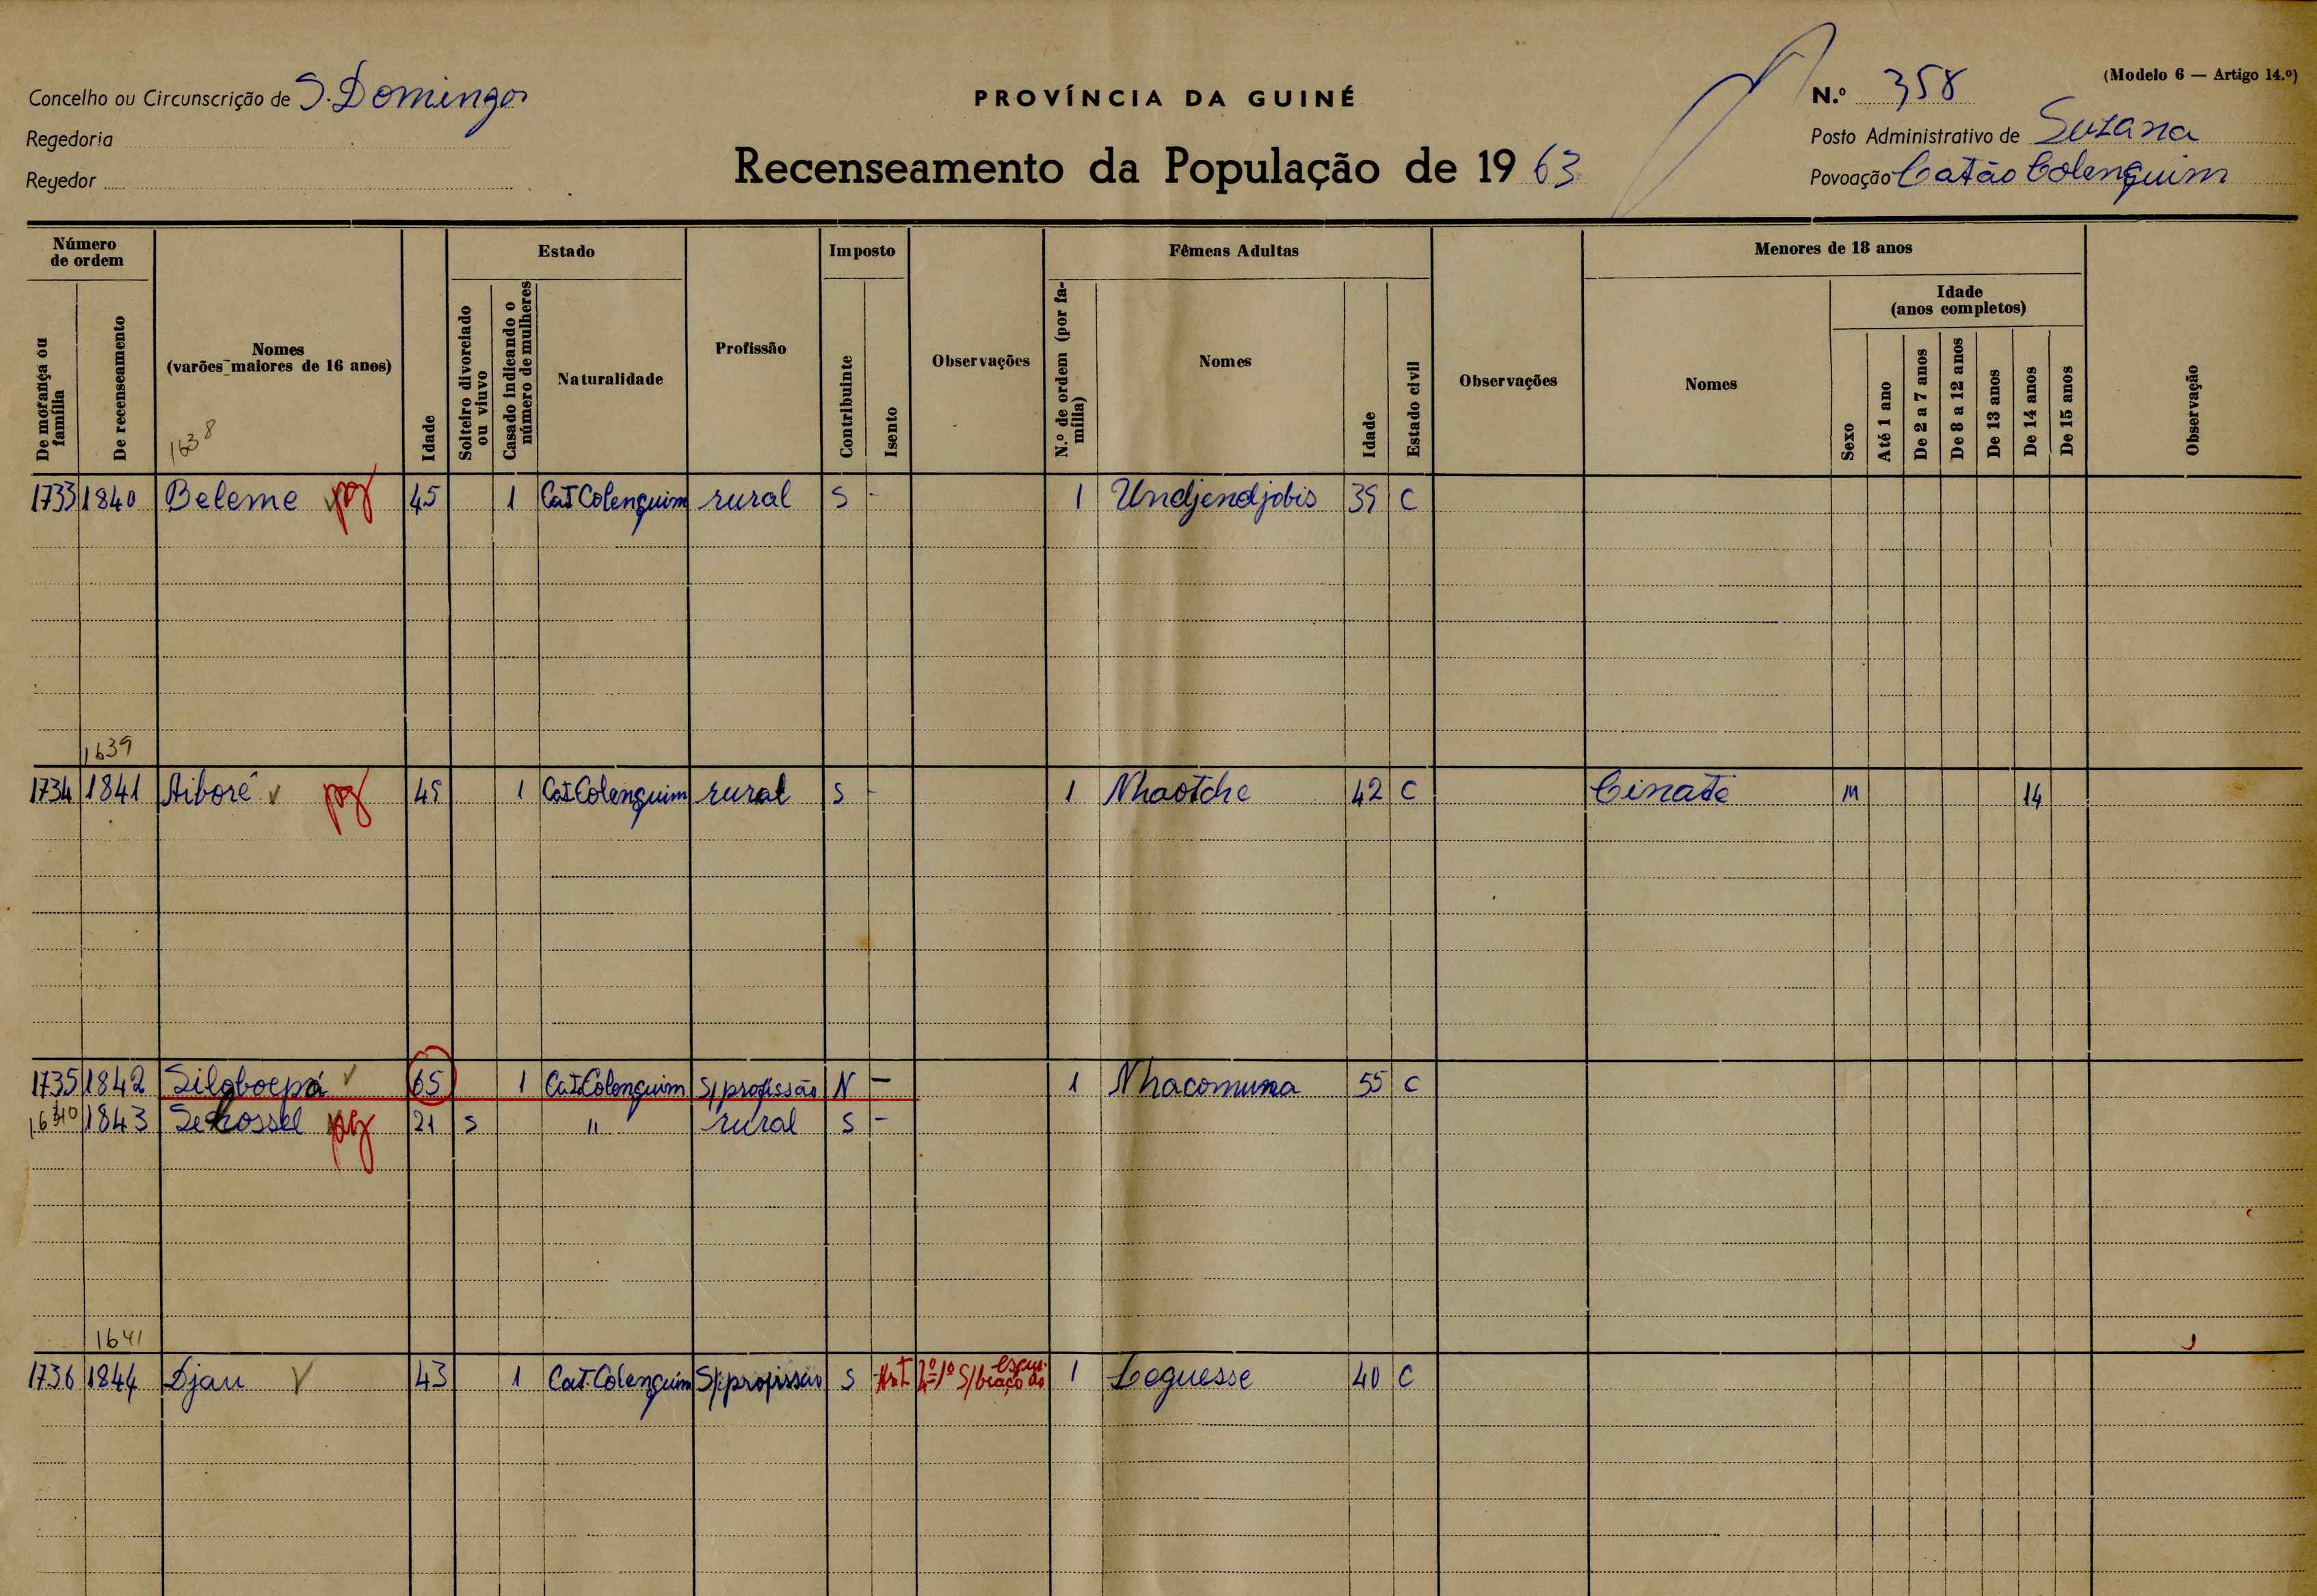 (Modelo 6 — Artigo 14.º)
Concelho ou Circunscrição de S. Domingos
PROVÍNCIA DA GUINÉ
N.º 358
Regedoria
Posto Administrativo de Suzana
Regedor
Recenseamento da População de 19 63
Povoação Catão Colenquim
Número de ordem
Estado
Imposto
Fêmeas Adultas
Menores de 18 anos
Idade (anos completos)
De morança ou família
De recenseamento
Nomes (varões maiores de 16 anos)
Idade
Solteiro divorciado ou viuvo
Casado indicando o número de mulheres
Naturalidade
Profissão
Contribuinte
Isento
Observações
N.º de ordem (por família)
Nomes
Idade
Estado civil
Observações
Nomes
Sexo
Até 1 ano
De 2 a 7 anos
De 8 a 12 anos
De 13 anos
De 14 anos
De 15 anos
Observação
1638
1733 1840 Beleme pg 45 1 Cat Colenquim rural S - 1 Undjendjobis 39 C
1639
1734 1841 Aiboré pg 45 1 Cat Colenquim rural S - 1 Nhaotche 42 C Cinate M 14
1735 1842 Siloboepá 65 1 Cat Colenquim S/profissão N — 1 Nhacomuna 55 C
1640 1843 21 S " rural S -
1641
1736 1844 Djau V 43 1 Cat. Colenquim S/profissão S S/braço 1 Loguesse 40 C